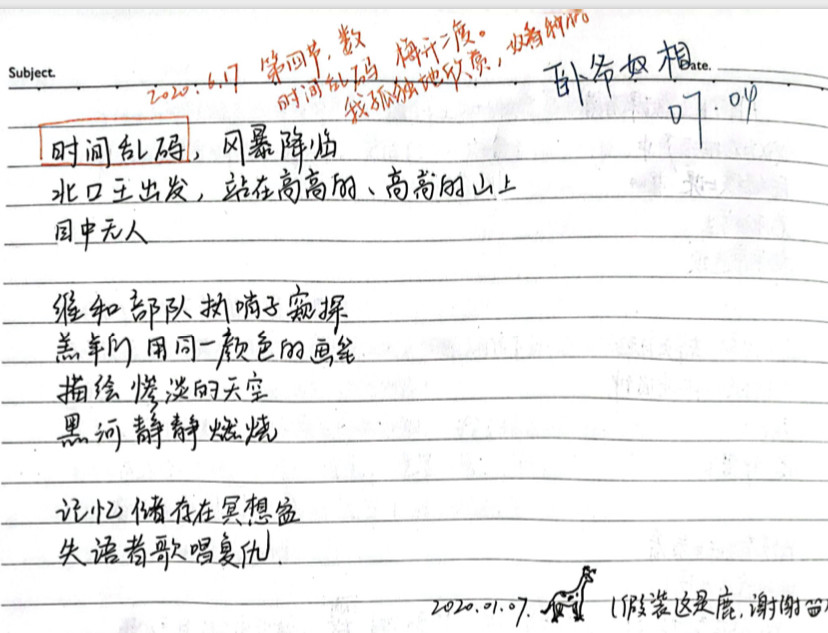 2020.6.17 第四节,数
时间乱码 梅开二度。
我孤独地欣赏,
Subject.
ate.
07 04
时间乱码,风暴降临
北口王出发,站在高高的、高高的山上
目中无人
维和部队执哨子窥探
羔羊们用同一颜色的画笔
描绘惨淡的天空
黑河静静燃烧
记忆储存在冥想盆
失语者歌唱复仇.
2020.01.07. (假装这是鹿,谢谢